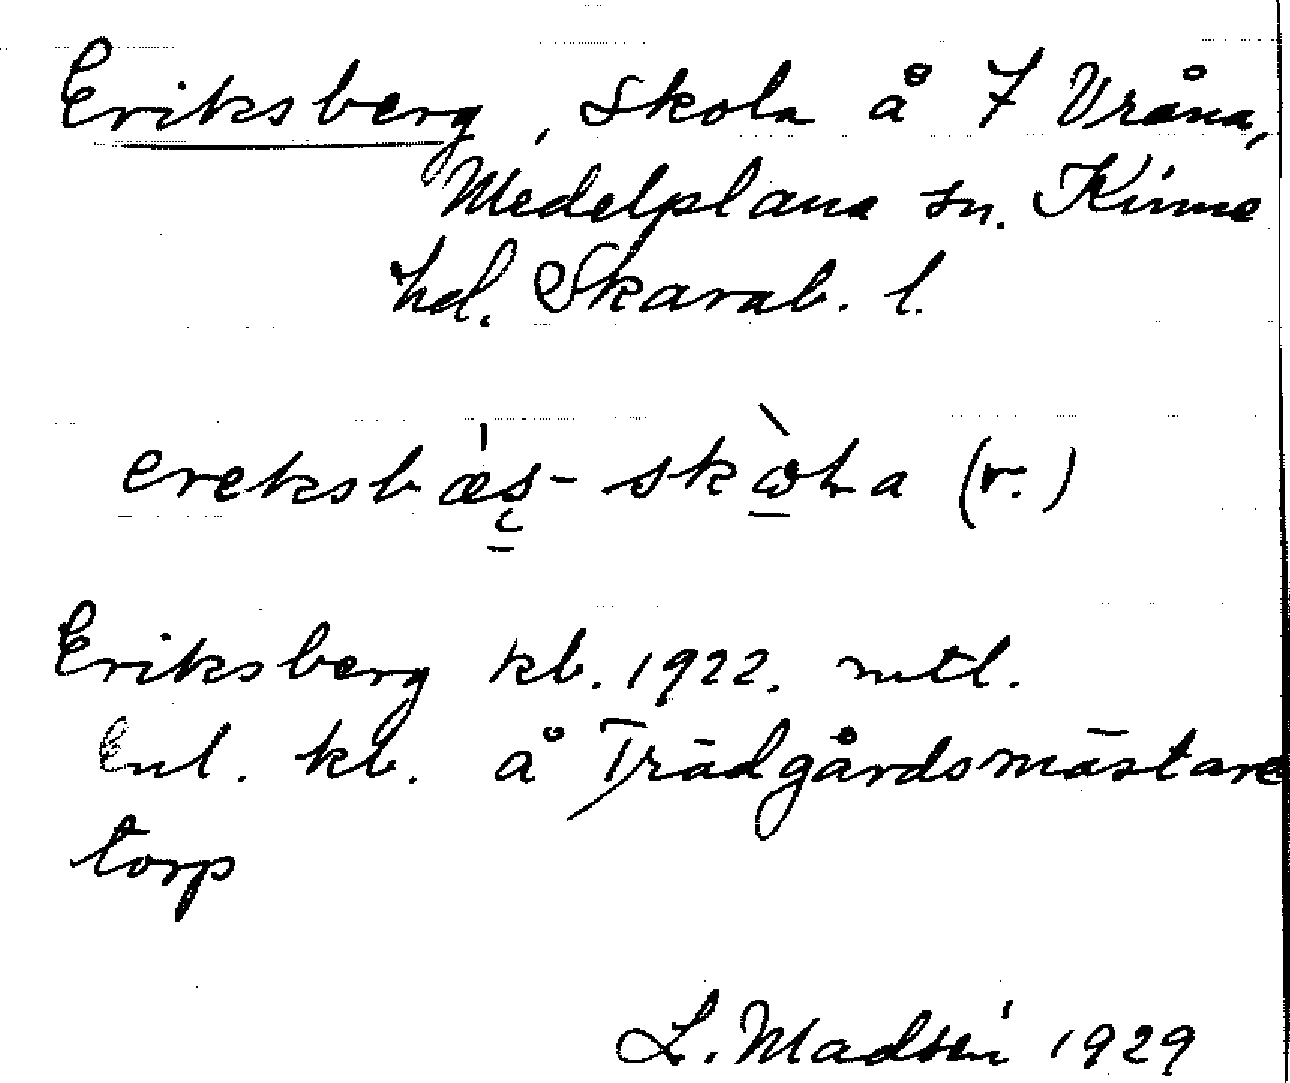 Eriksberg, skola å 7 Vråna,
Medelplana sn. Kinne
hd. Skarab. l.
(r.)
Eriksberg kb. 1922. mtl.
Enl. kb. å Trädgårdsmästare
torp
L. Madsén 1929